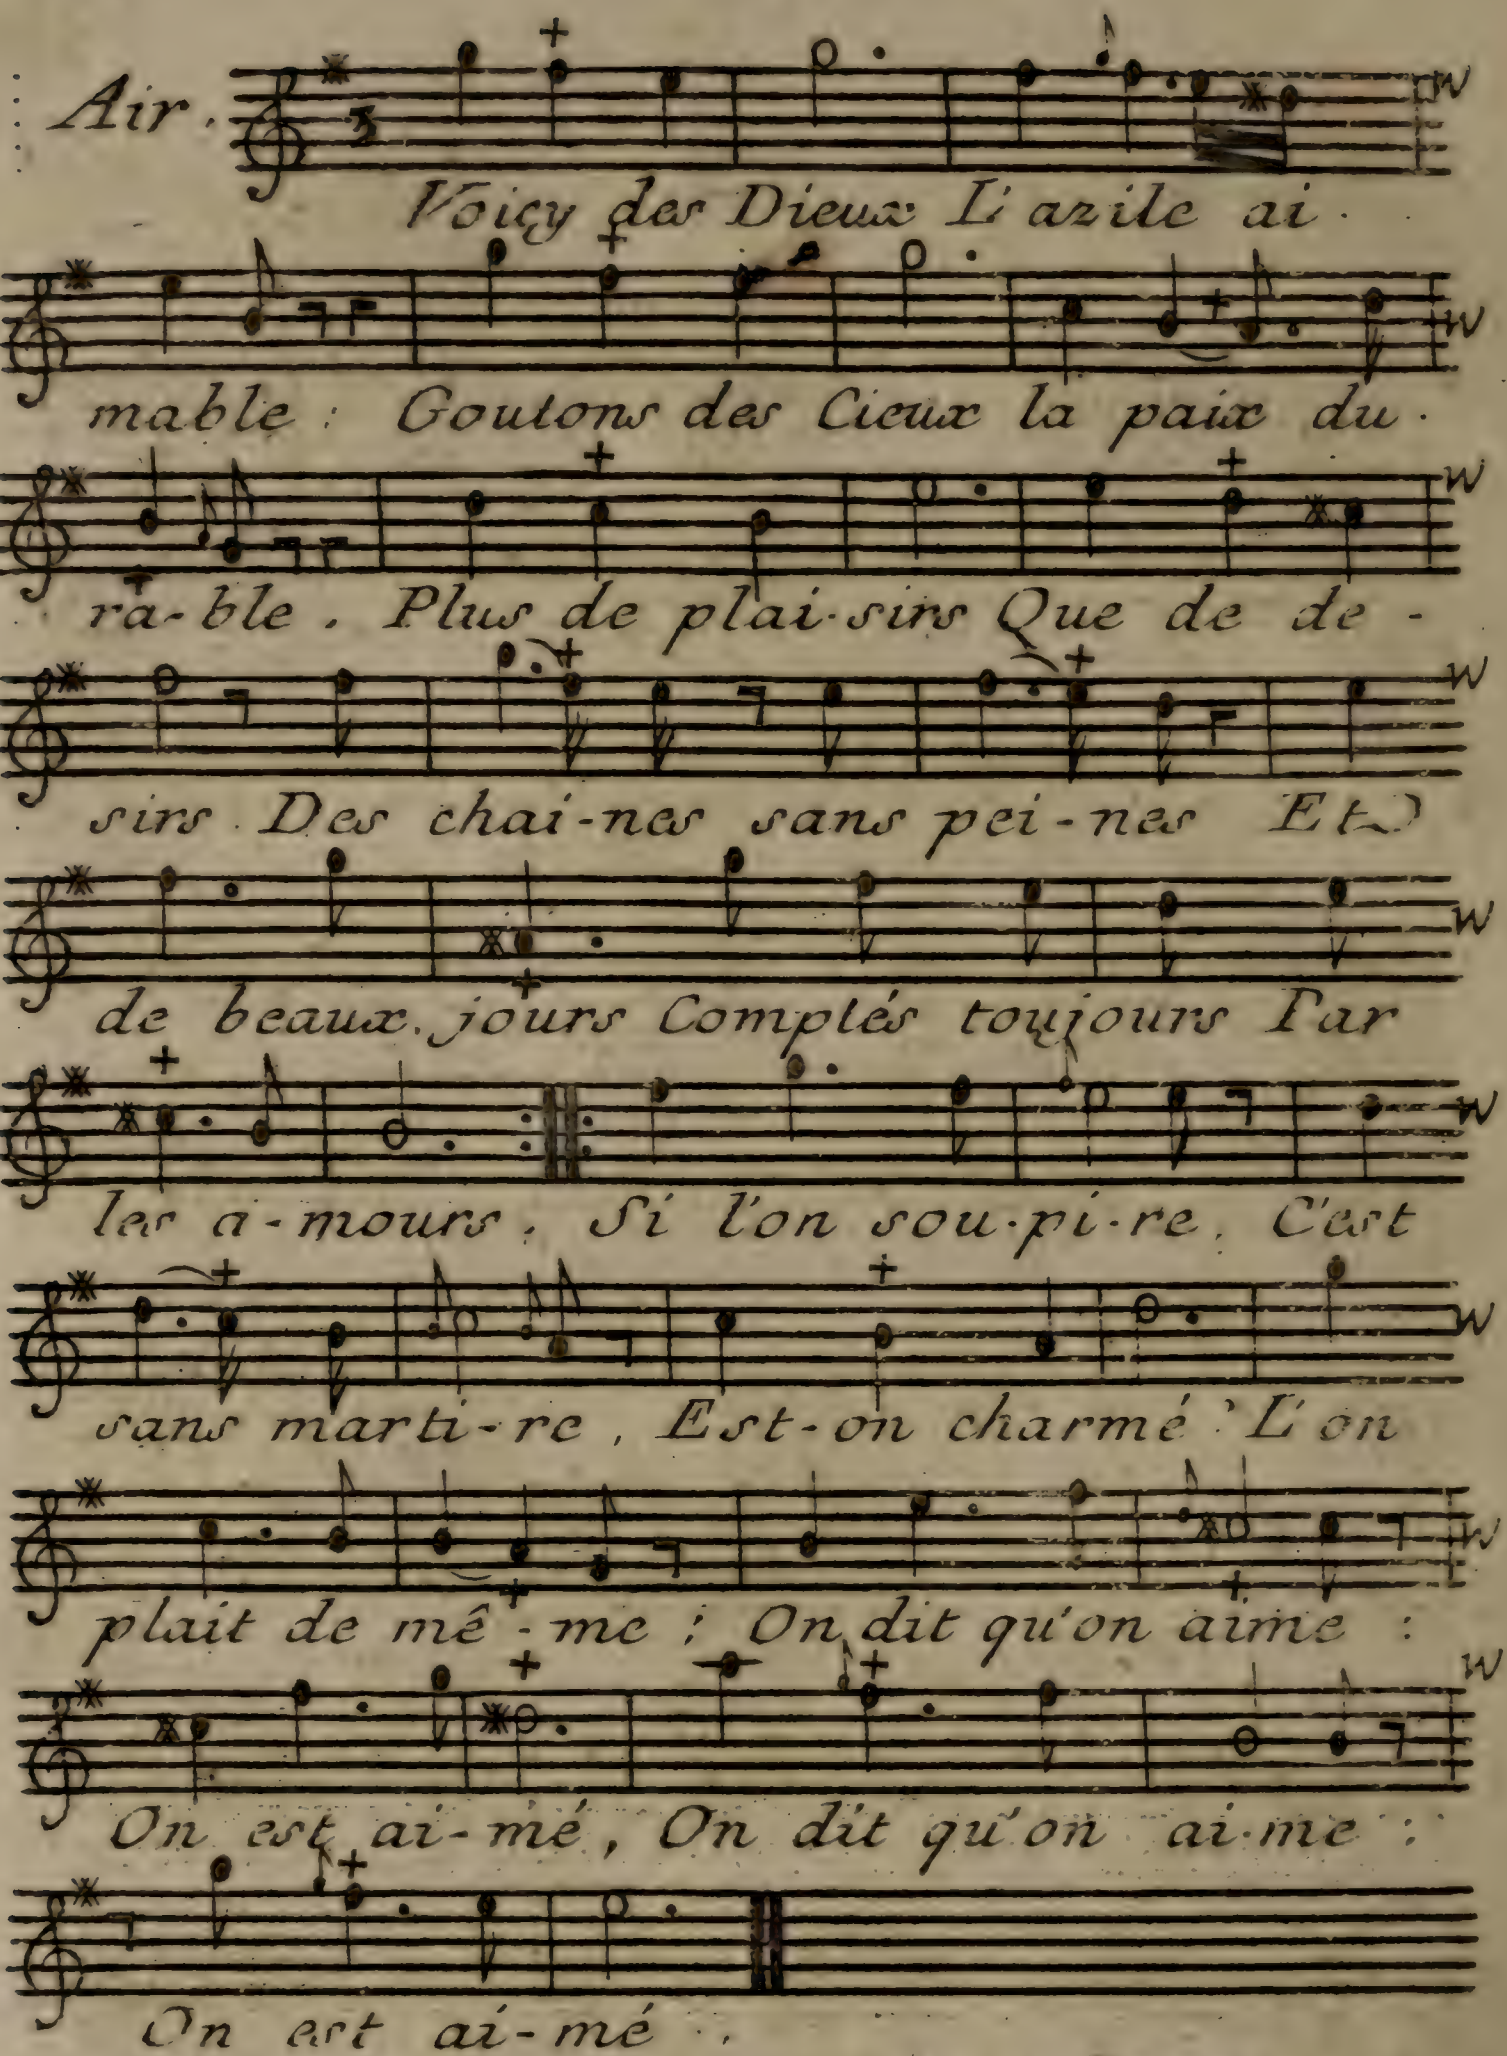 Air.
Voicy des Dieux L'azile ai-
mable: Goutons des Cieux la paix du-
ra-ble. Plus de plai-sirs Que de de-
sirs. Des chai-nes sans pei-nes Et
de beaux jours Comptés toujours Par
les a-mours. Si l'on sou-pi-re, C'est
sans marti-re, Est-on charmé? L'on
plait de mê-me: On dit qu'on aime:
On est ai-mé, On dit qu'on ai-me:
On est ai-mé.